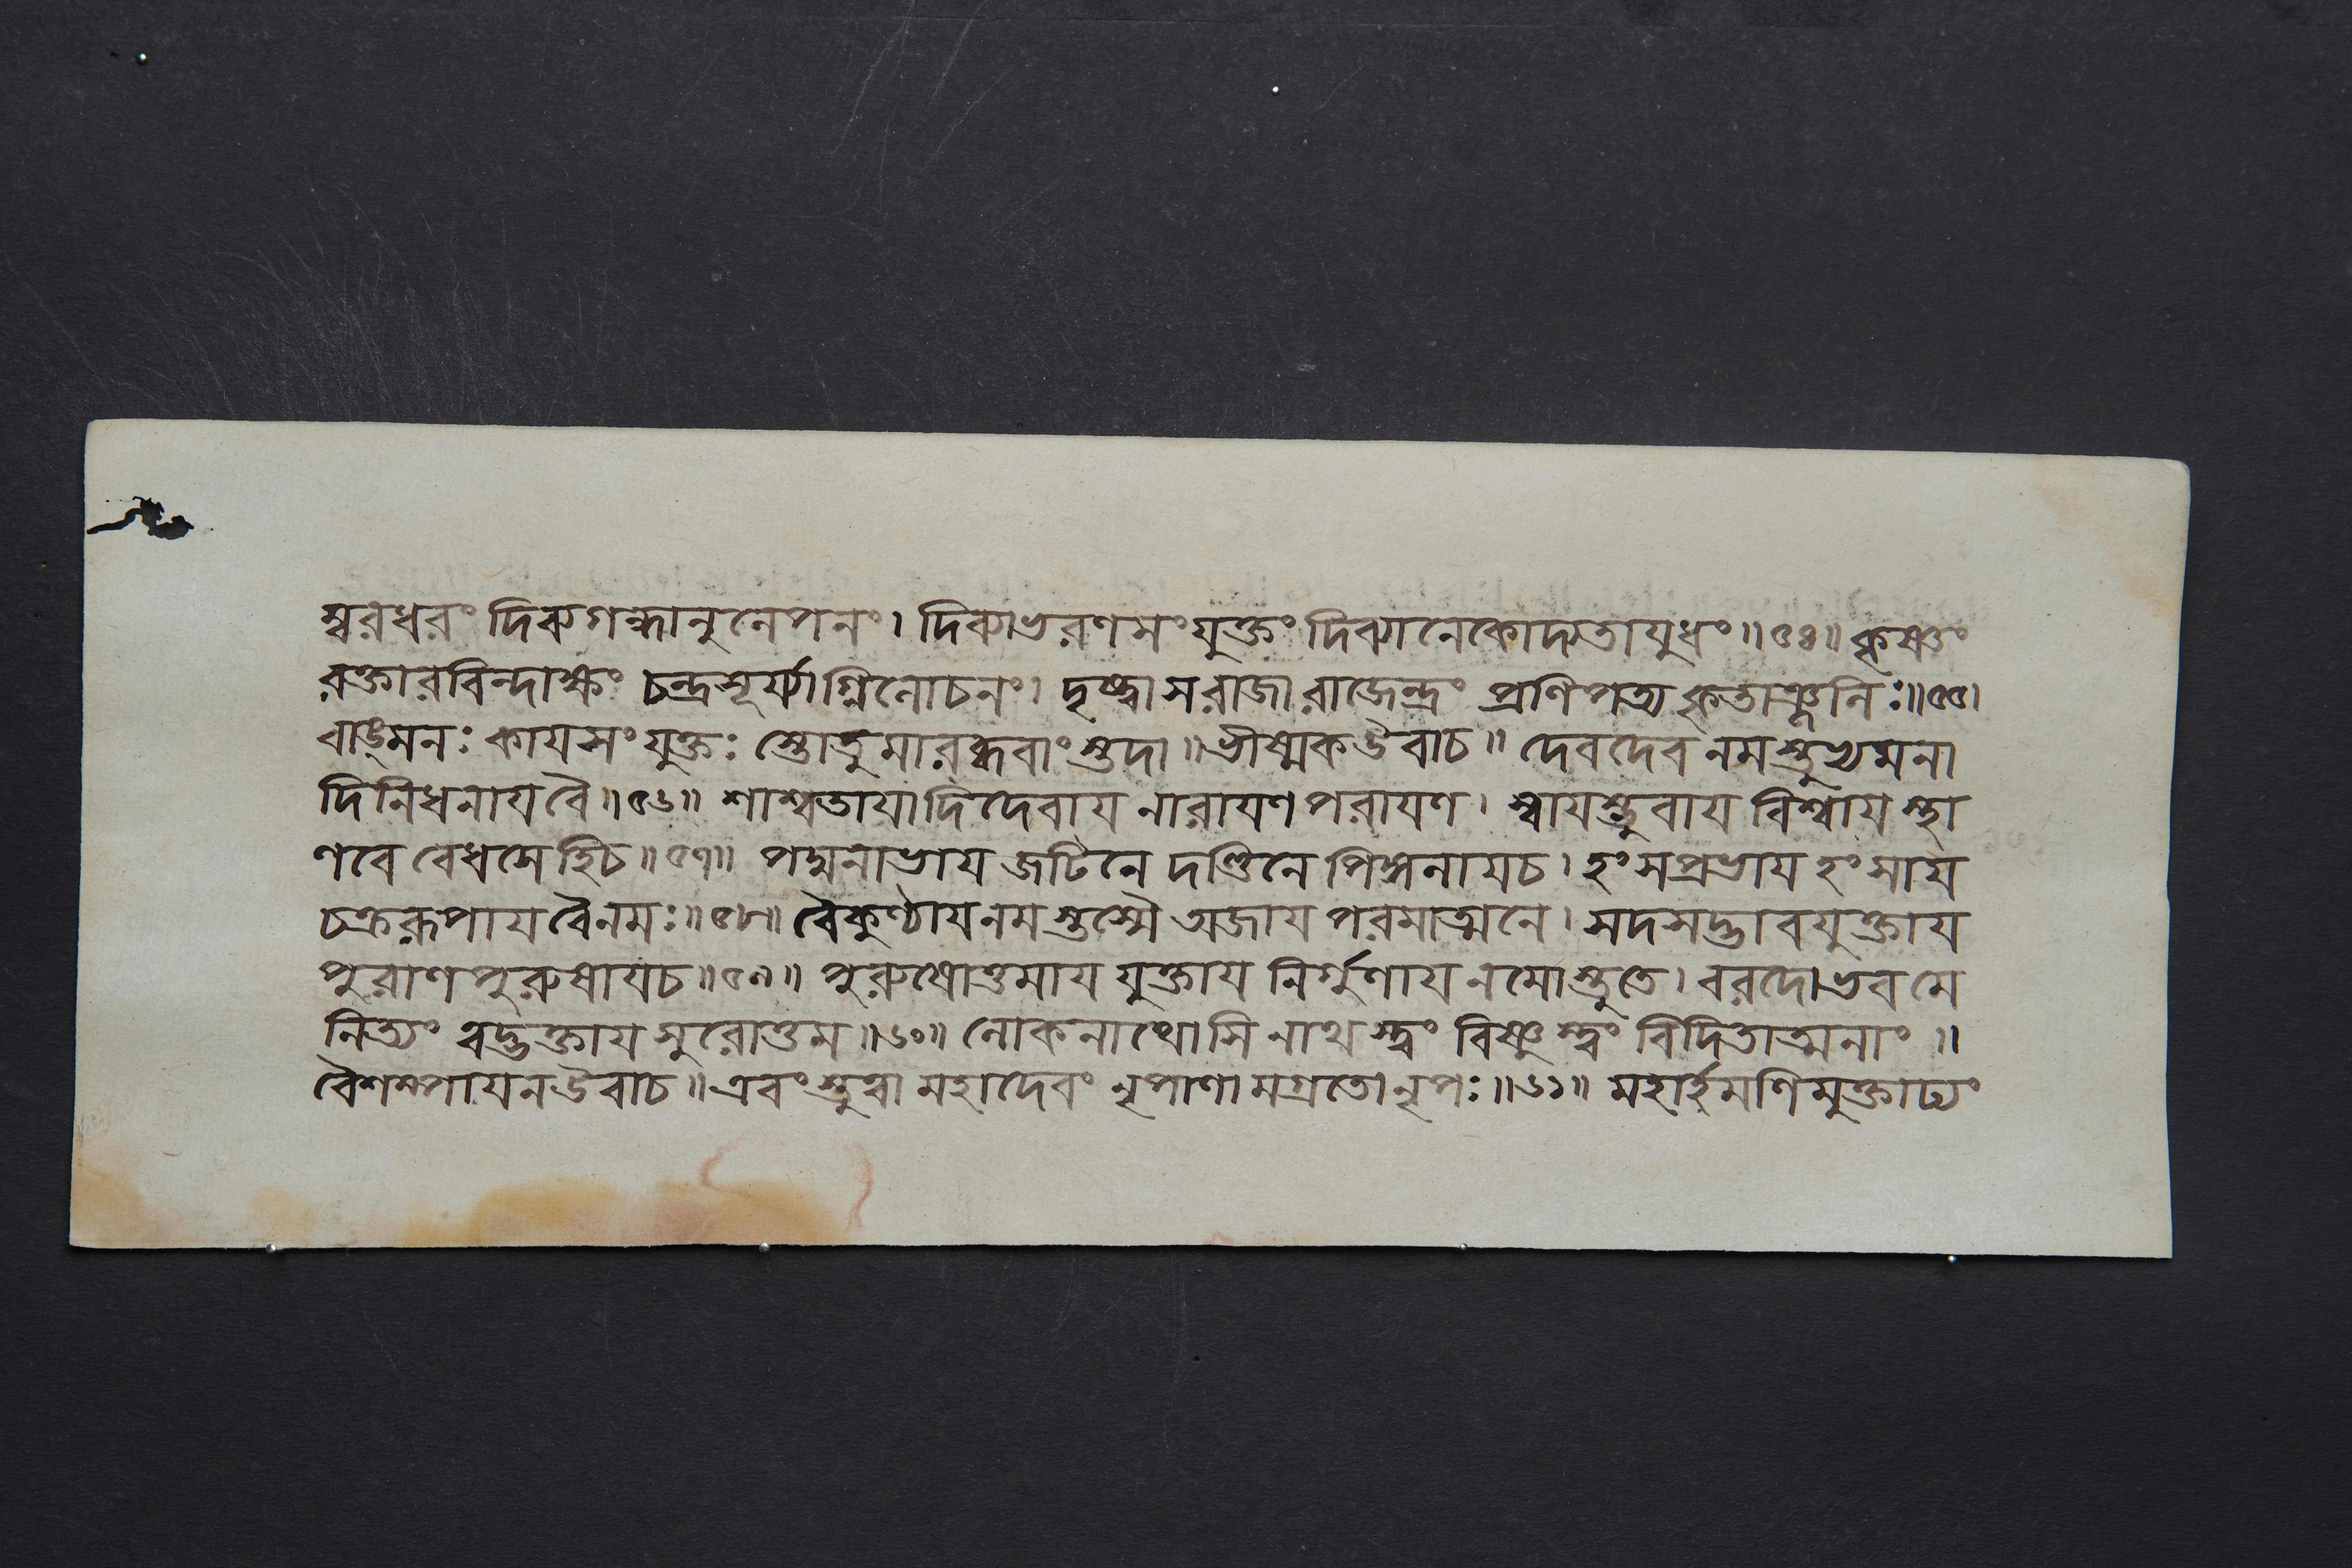 ম্বরধরং দিব্যগন্ধানুলেপনং। দিব্যাভরণসংযুক্তং দিব্যানেকোদ্যতাযুধং॥৫৪॥ কৃষ্ণং
রক্তারবিন্দাক্ষং চন্দ্রসূর্য্যাগ্নিলোচনং। দৃষ্ট্বা স রাজা রাজেন্দ্রং প্রণিপত্য কৃতাঞ্জলিঃ॥৫৫।
বাঙ্মনঃ কাযসংযুক্তঃ স্তোতুমারব্ধবাংস্তদা॥ ভীষ্মক উবাচ॥ দেবদেব নমস্তুভ্যমনা
দিনিধনায বৈ॥৫৬॥ শাশ্বতাযাদিদেবায নারাযণ পরাযণ। স্বাযম্ভুবায বিশ্বায স্থা
ণবে বেধসে হি চ॥৫৭॥ পদ্মনাভায জটিনে দণ্ডিনে পিঙ্গলায চ। হংসপ্রভায হংসায
চক্ররূপায বৈ নমঃ॥৫৮॥ বৈকুণ্ঠায নমস্তস্মৈ অজায পরমাত্মনে। সদসদ্ভাবযুক্তায
পুরাণপুরুষায চ॥৫৯॥ পুরুষোত্তমায যুক্তায নির্গুণায নমোস্তু তে। বরদো ভব মে
নিত্যং ত্বদ্ভক্তায সুরোত্তম॥৬০॥ লোকনাথোসি নাথ ত্বং বিষ্ণুস্ত্বং বিদিতাত্মনাং॥
বৈশম্পাযন উবাচ॥ এবং স্তুত্বা মহাদেবং নৃপাণামগ্রতো নৃপঃ॥৬১॥ মহার্হমণিমুক্তাঢ্যং